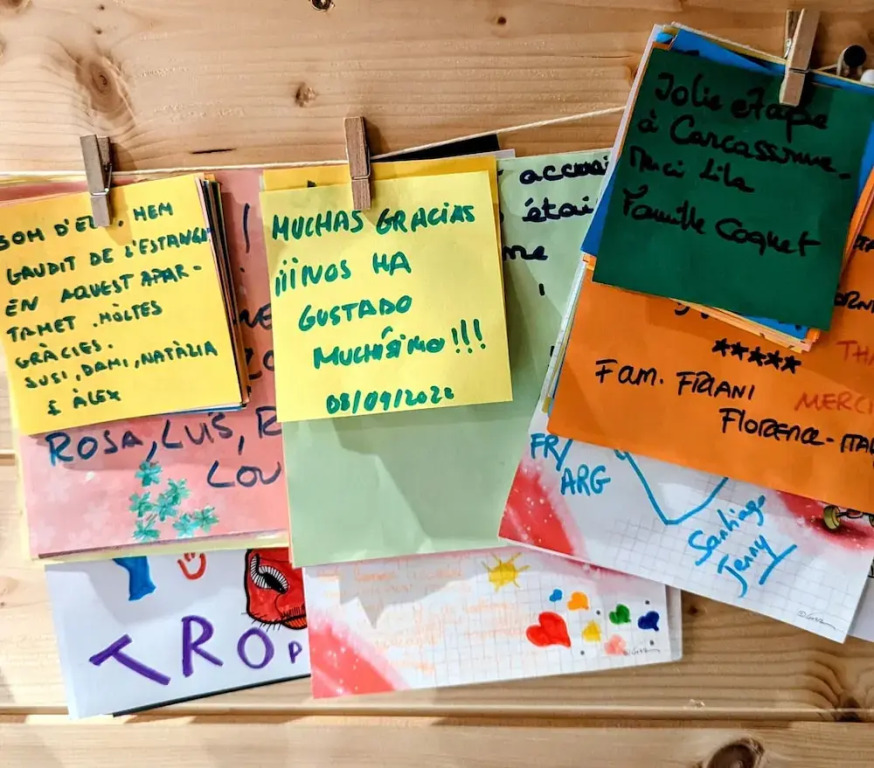 SOM D'EZ. HEM
GAUDIT DE L'ESTANÇA
EN AQUEST APAR-
TAMET. MÒLTES
GRÀCIES.
SUSI, DAMI, NATÀZIA
& ÀLEX
ROSA, LUÍS,
LOU
TROP
MUCHAS GRACIAS
¡¡¡NOS HA
GUSTADO
MUCHÍSIMO!!!
08/09/2022
accuei
étai
Jolie etape
à Carcassonne.
Merci Lila
Famille Coquet
*****
Fam. FRIANI
FLORENCE-ITA
TH
MERCI
FR/
ARG
Santiago
Jenny